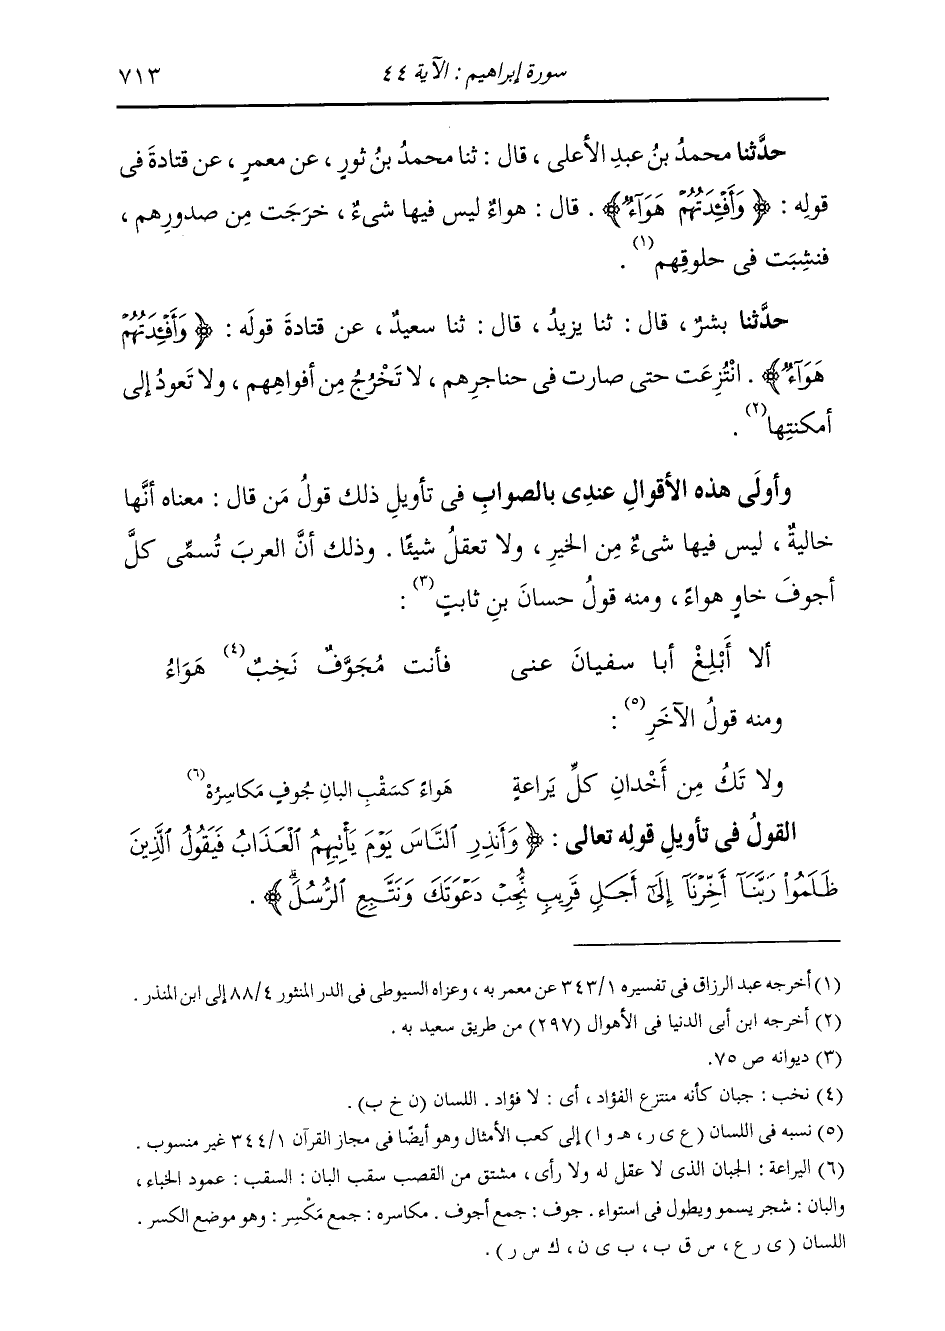 سورة إبراهيم : الآية ٤٤ ٧١٣
حدَّثنا محمدُ بنُ عبدِ الأعلى ، قال : ثنا محمدُ بنُ ثورٍ ، عن معمرٍ ، عن قتادةَ فى
قولِه : ﴿ وَأَفْـِٔدَتُهُمْ هَوَآءٌ ﴾ . قال : هواءٌ ليس فيها شىءٌ ، خرَجَت مِن صدورِهم ،
فنشِبَت فى حلوقِهم (١) .
حدَّثنا بشرٌ ، قال : ثنا يزيدُ ، قال : ثنا سعيدٌ ، عن قتادةَ قولَه : ﴿ وَأَفْـِٔدَتُهُمْ
هَوَآءٌ ﴾ . انْتُزِعَت حتى صارت فى حناجرِهم ، لا تَخْرُجُ مِن أفواهِهم ، ولا تَعودُ إلى
أمكنتِها (٢) .
وأولَى هذه الأقوالِ عندِى بالصوابِ فى تأويلِ ذلك قولُ مَن قال : معناه أنَّها
خاليةٌ ، ليس فيها شىءٌ مِن الخيرِ ، ولا تعقلُ شيئًا . وذلك أنَّ العربَ تُسمِّى كلَّ
أجوفَ خاوٍ هواءً ، ومنه قولُ حسانَ بنِ ثابتٍ (٣) :
ألا أَبْلِغْ أبا سفيانَ عنى فأنت مُجَوَّفٌ نَخِبٌ (٤) هَوَاءُ
ومنه قولُ الآخَرِ (٥) :
ولا تَكُ مِن أَخْدانِ كلِّ يَراعةٍ هَواءً كسَقْبِ البانِ جُوفٍ مَكاسِرُهْ (٦)
القولُ فى تأويلِ قولِه تعالى : ﴿ وَأَنذِرِ ٱلنَّاسَ يَوْمَ يَأْتِيهِمُ ٱلْعَذَابُ فَيَقُولُ ٱلَّذِينَ
ظَلَمُوا۟ رَبَّنَآ أَخِّرْنَآ إِلَىٰٓ أَجَلٍ قَرِيبٍ نُّجِبْ دَعْوَتَكَ وَنَتَّبِعِ ٱلرُّسُلَ ۗ ﴾ .
(١) أخرجه عبد الرزاق فى تفسيره ٣٤٣/١ عن معمر به ، وعزاه السيوطى فى الدر المنثور ٨٨/٤ إلى ابن المنذر .
(٢) أخرجه ابن أبى الدنيا فى الأهوال (٢٩٧) من طريق سعيد به .
(٣) ديوانه ص ٧٥.
(٤) نخب : جبان كأنه منتزع الفؤاد ، أى : لا فؤاد . اللسان (ن خ ب) .
(٥) نسبه فى اللسان (ع ى ر، هـ و ا) إلى كعب الأمثال وهو أيضًا فى مجاز القرآن ٣٤٤/١ غير منسوب .
(٦) اليراعة : الجبان الذى لا عقل له ولا رأى ، مشتق من القصب سقب البان : السقب : عمود الخباء ،
والبان : شجر يسمو ويطول فى استواء . جوف : جمع أجوف . مكاسره : جمع مَكْسِر : وهو موضع الكسر .
اللسان ( ى ر ع ، س ق ب ، ب ى ن ، ك س ر ) .